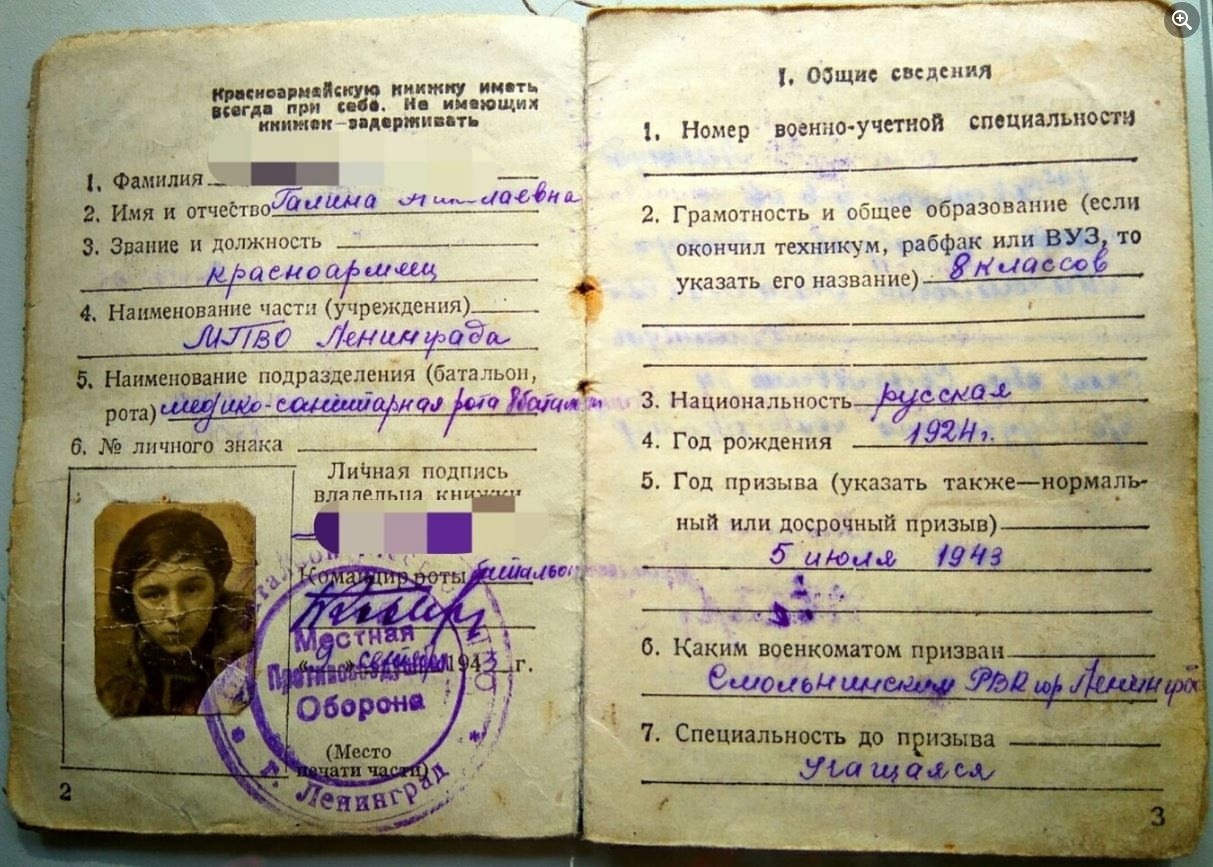 Красноармейскую книжку иметь
всегда при себе. Не имеющих
книжек—задерживать
1. Фамилия
2. Имя и отчество Галина Николаевна
3. Звание и должность
красноармеец
4. Наименование части (учреждения)
МПВО Ленинграда
5. Наименование подразделения (батальон,
рота) медико-санитарная рота
6. № личного знака
Личная подпись
владельца книжки
Командир роты батальон
Местная
"9" сентября 1943 г.
Противовоздушная
Оборона
(Место
печати части)
г. Ленинград
2
I. Общие сведения
1. Номер военно-учетной специальности
2. Грамотность и общее образование (если
окончил техникум, рабфак или ВУЗ, то
указать его название) 8 классов
3. Национальность русская
4. Год рождения 1924 г.
5. Год призыва (указать также—нормаль-
ный или досрочный призыв)
5 июля 1943
6. Каким военкоматом призван
Смольнинским РВК гор Ленингра
7. Специальность до призыва
Учащаяся
3